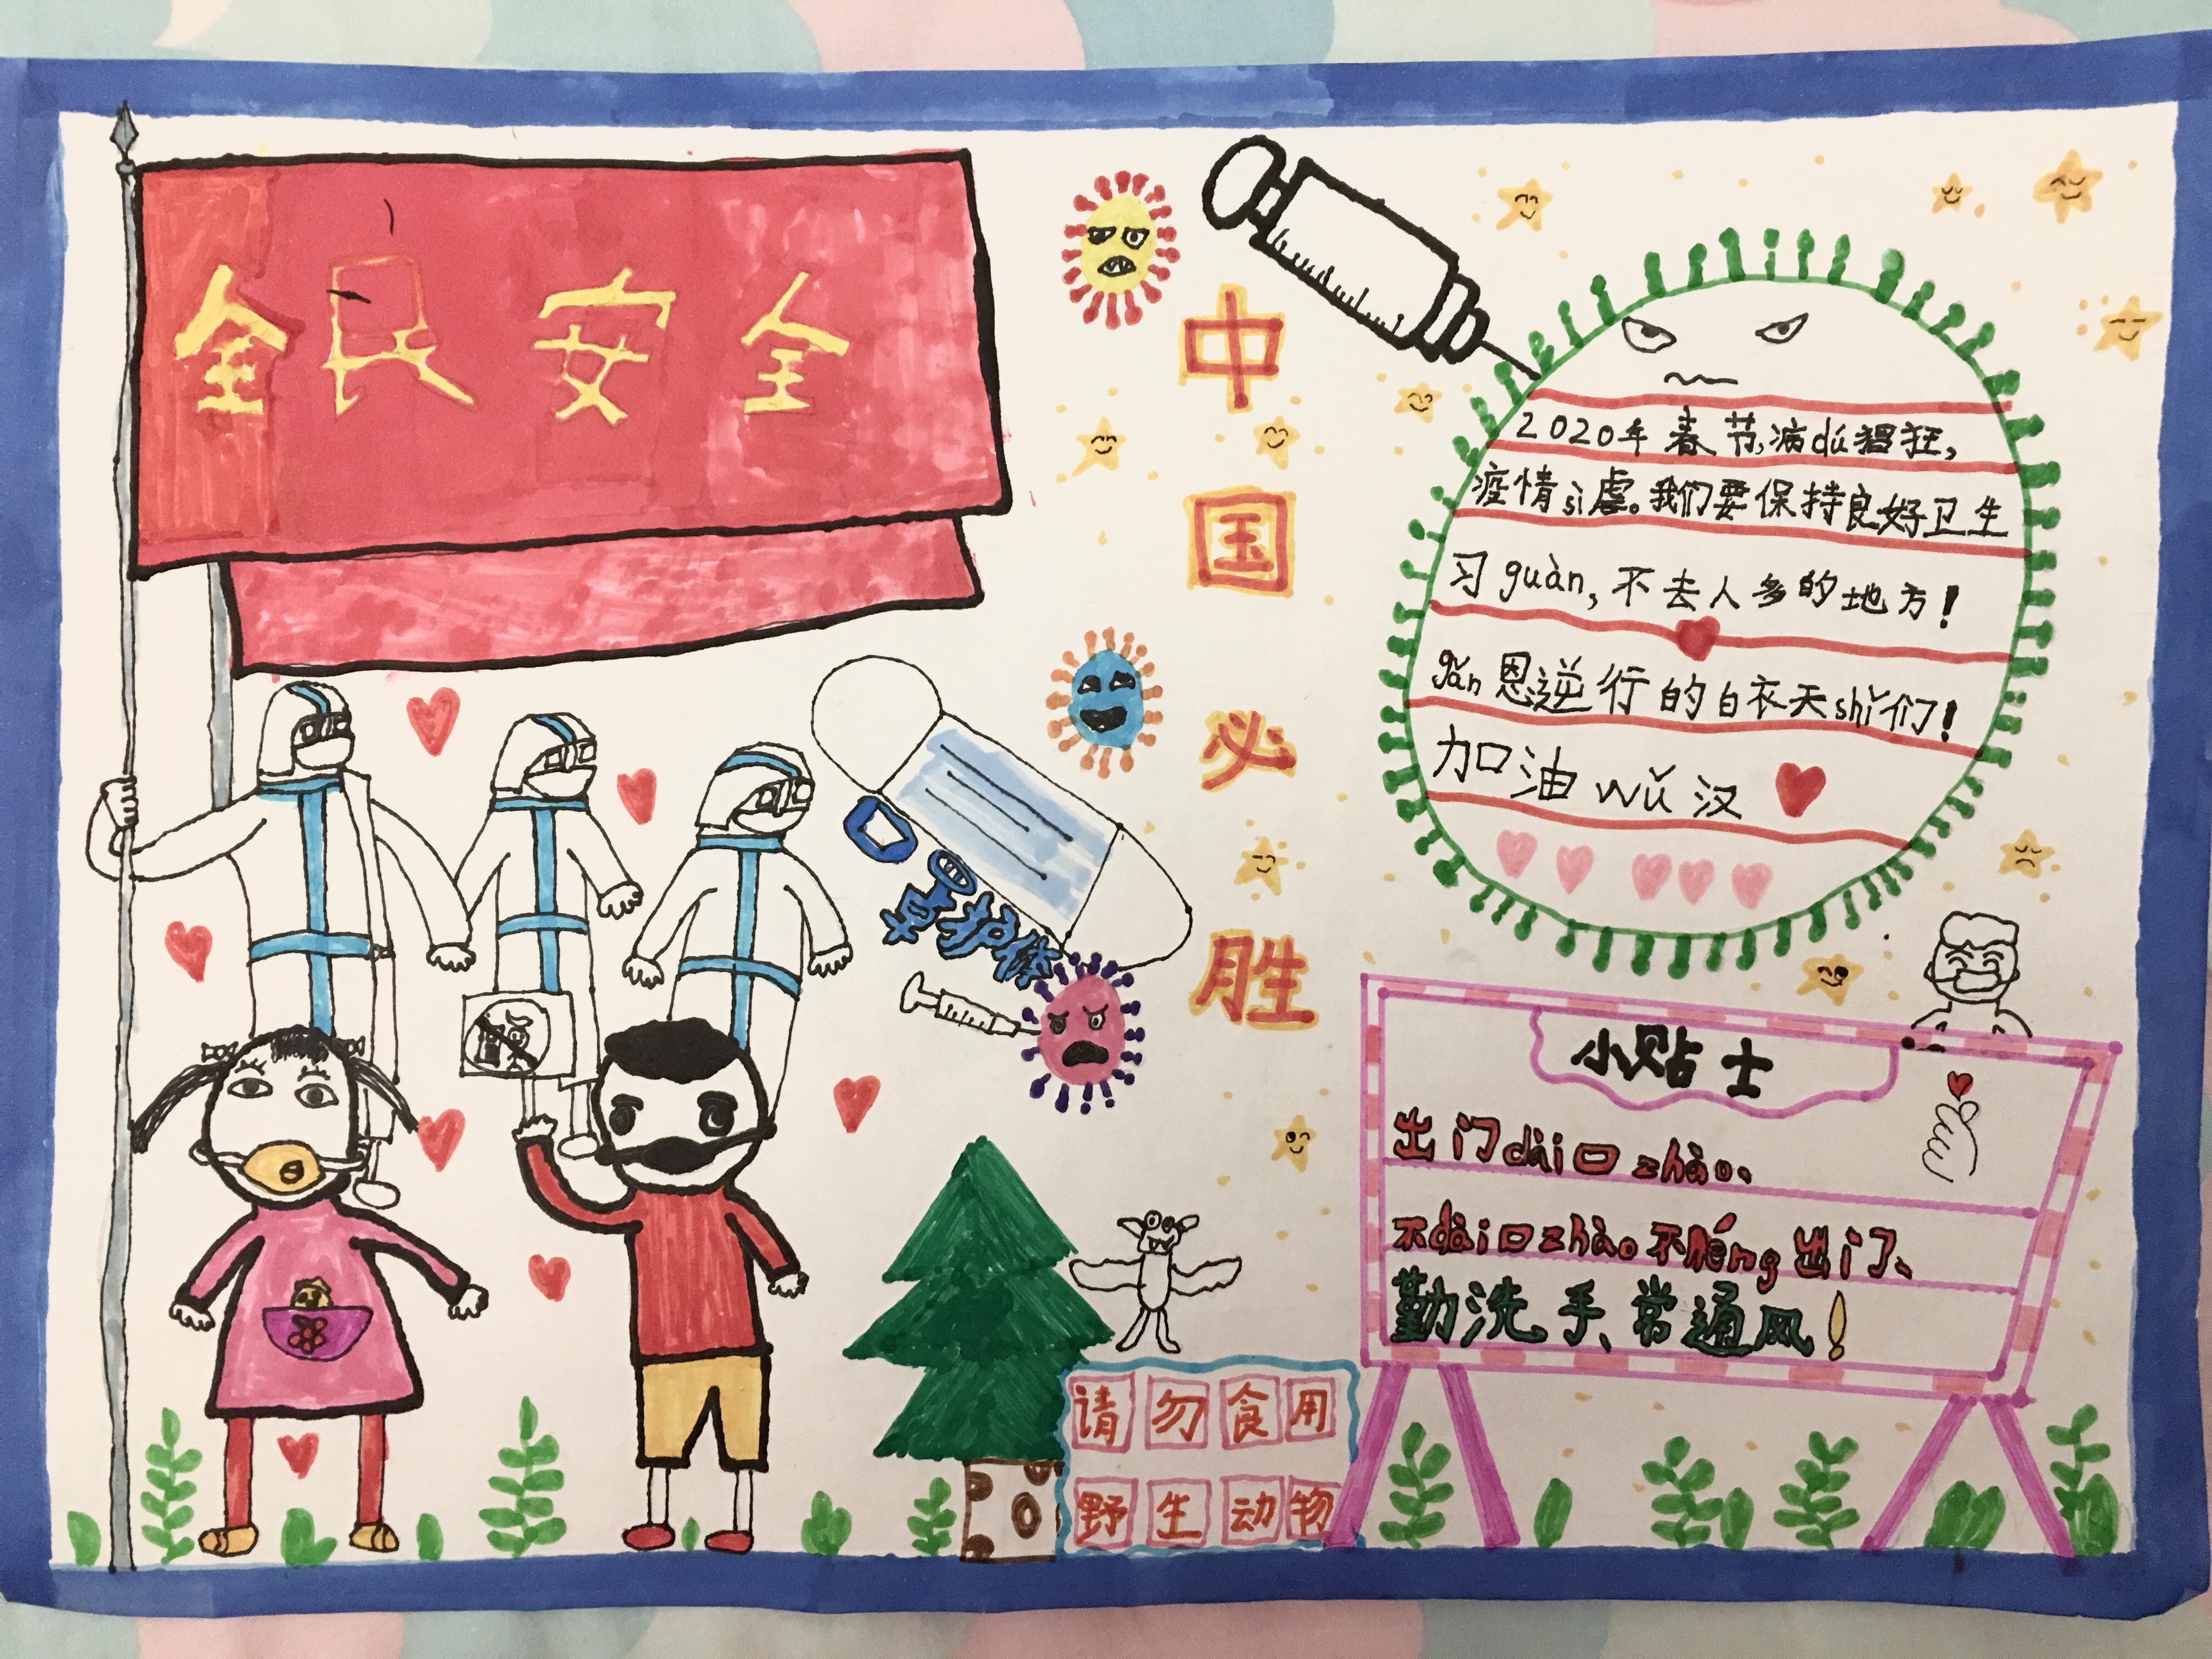 全民安全
中国必胜
2020年春节,病dú猖狂,
疫情sì虐。我们要保持良好卫生
习guàn,不去人多的地方!
gǎn恩逆行的白衣天shǐ们!
加油wǔ汉
口罩护体
小贴士
出门dài口zhào、
不dài口zhào不néng出门、
勤洗手、常通风!
请勿食用
野生动物